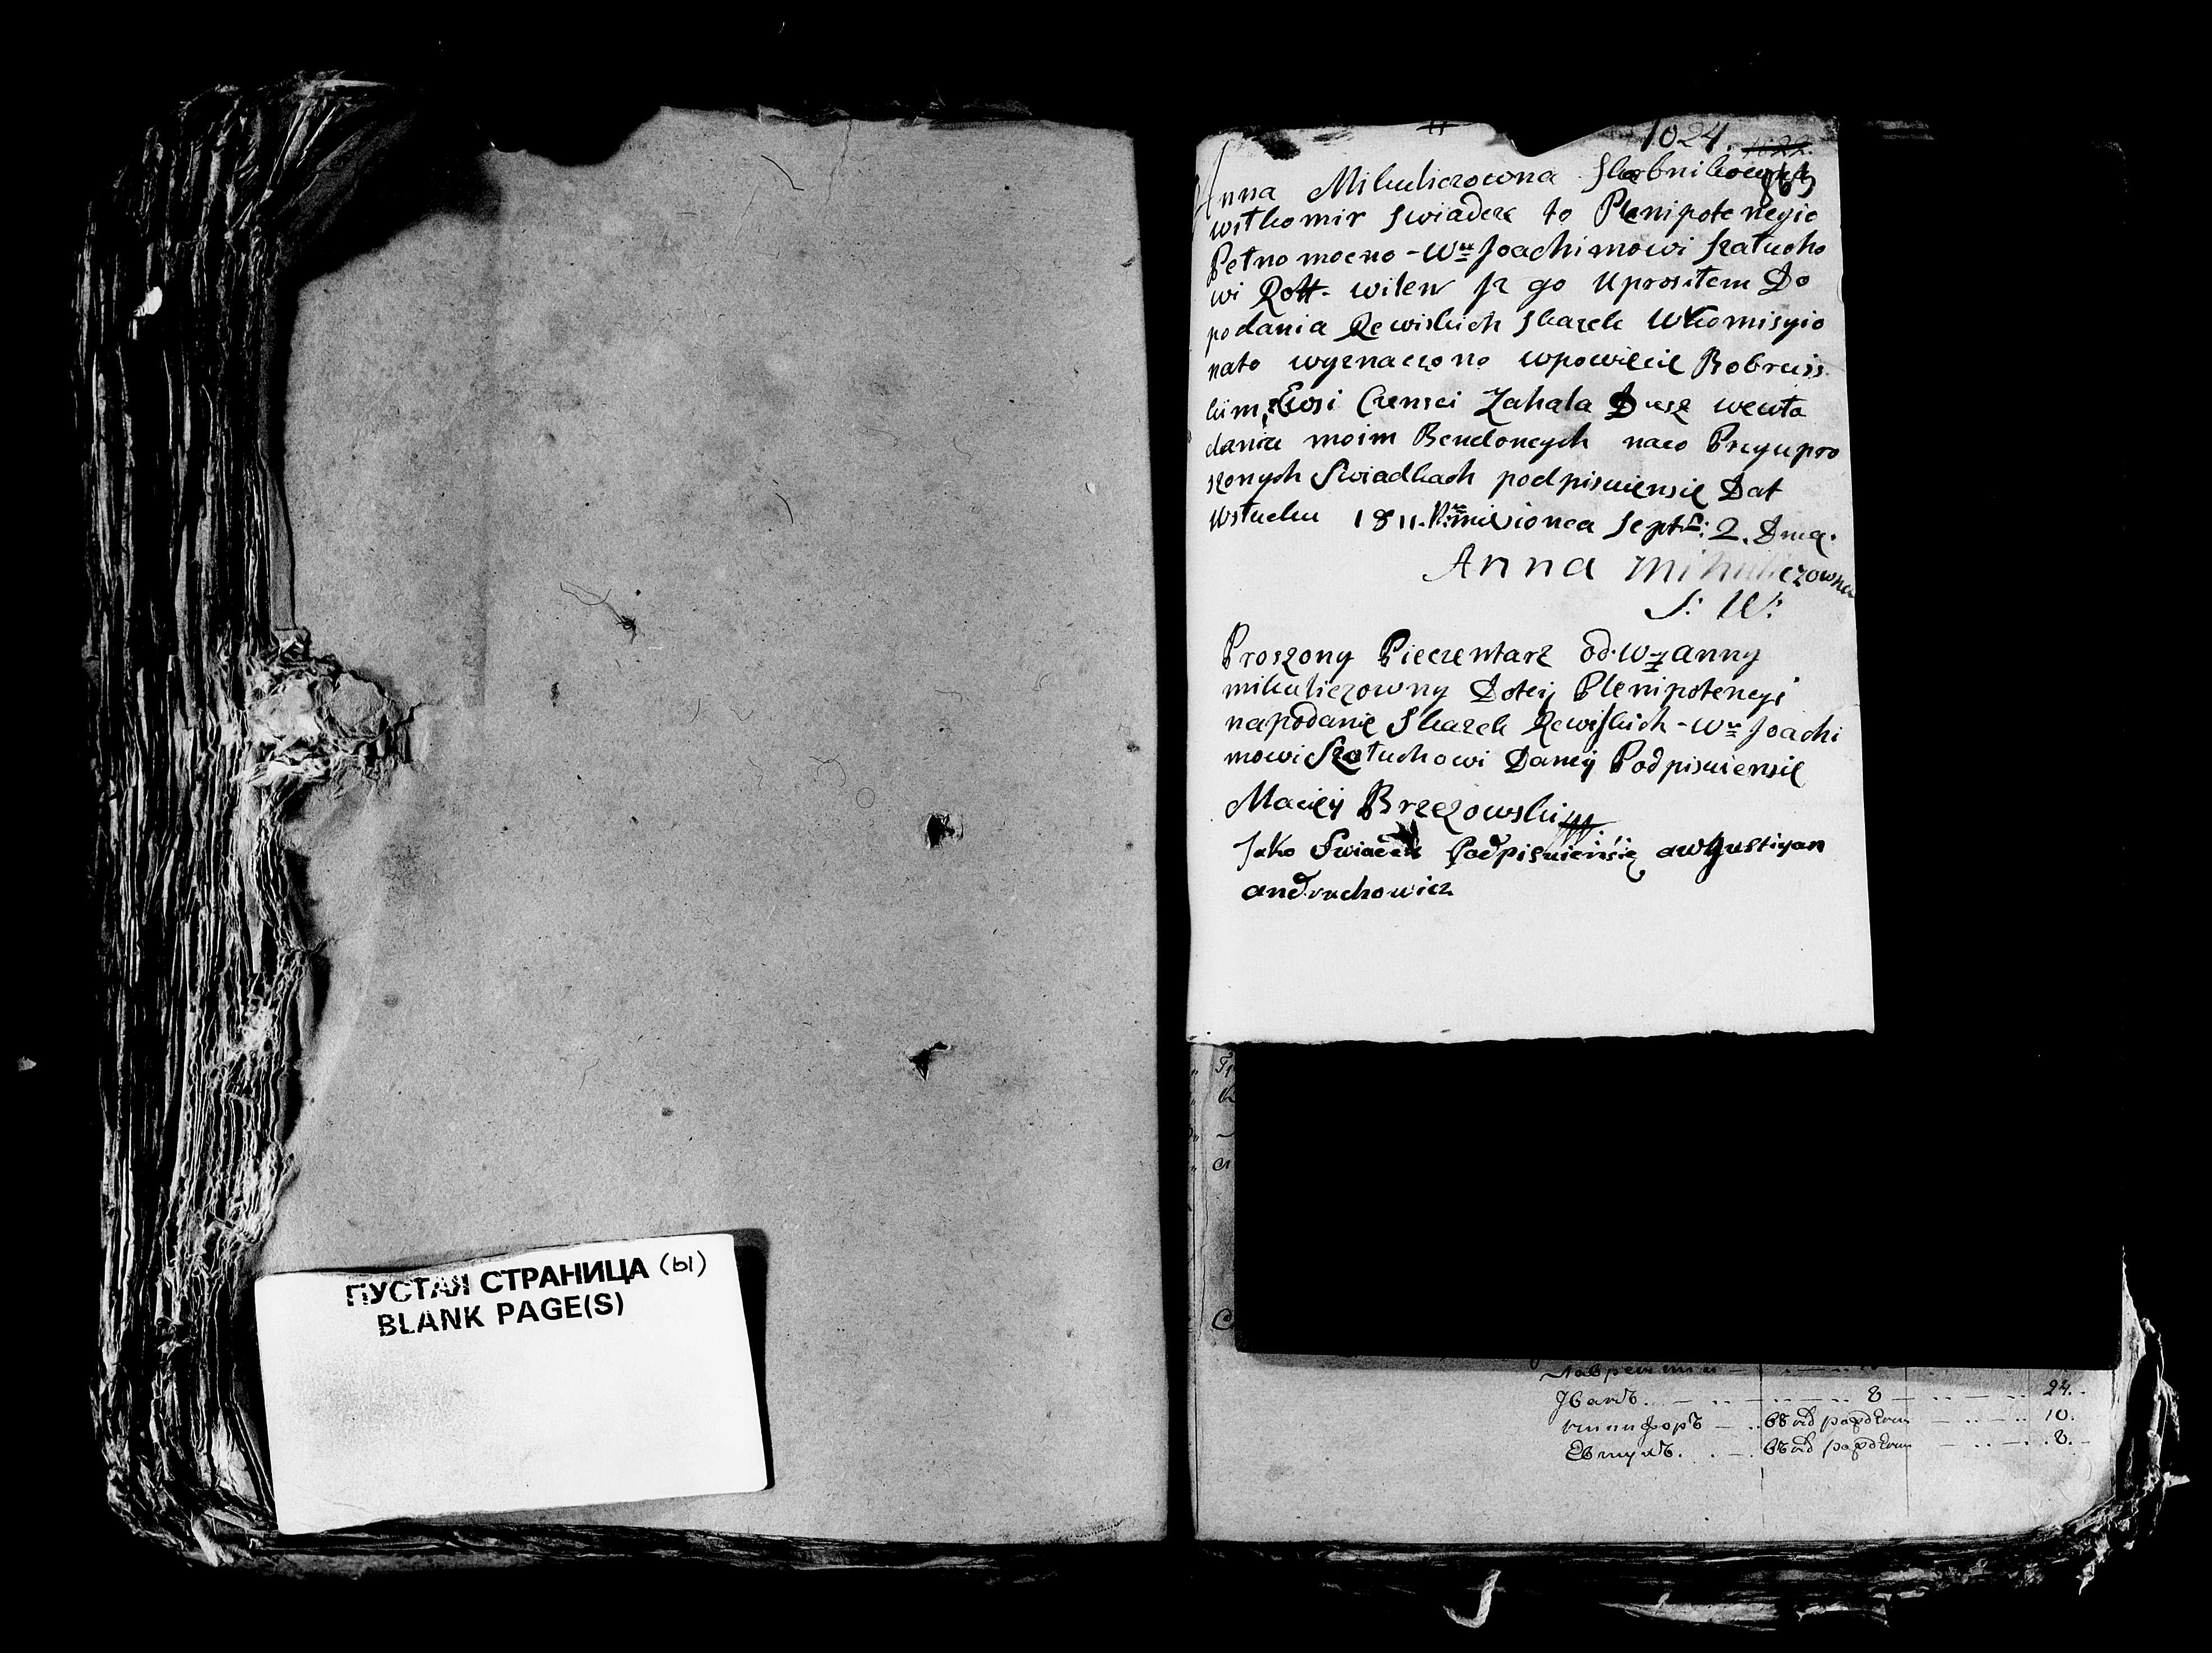 ПУСТАЯ СТРАНИЦА (ы)
BLANK PAGE(S)
1024. 1022.
Anna Mikuliczowna Skarbnikowna
wilkomir swiadczę to Plenipotencyio
Pełnomocno - Wu Joachimowi Szałucho
wi Rott. wilen Jż go Uprosiłem Do
podania Rewiskich Skazek W Komisyio
nato wyznaczono wpowiecie Bobruis
kim, Ewsi Czensci Zahala Dusz wewła
daniu moim Bendoncych naco Przyupro
szonych Swiadkach podpisuiensię Dat
Wsłucku 1811. Ru miesionca Septbr: 2. Dnia.
Anna Mikuliczowna
S: W:
Proszony Pieczentarz od Wy anny
mikuliczowny Dotey Plenipotencyi
napodanie Skazek Rewiskich - Wu Joachi
mowi Szałuchowi Daney Podpisuiensię
Maciey Brzezowski
Jako Swiadek Podpisuiensię awgustiyan
andruchowicz
Иванъ. 8 24.
Никифоръ 10.
Евтухъ. 8.